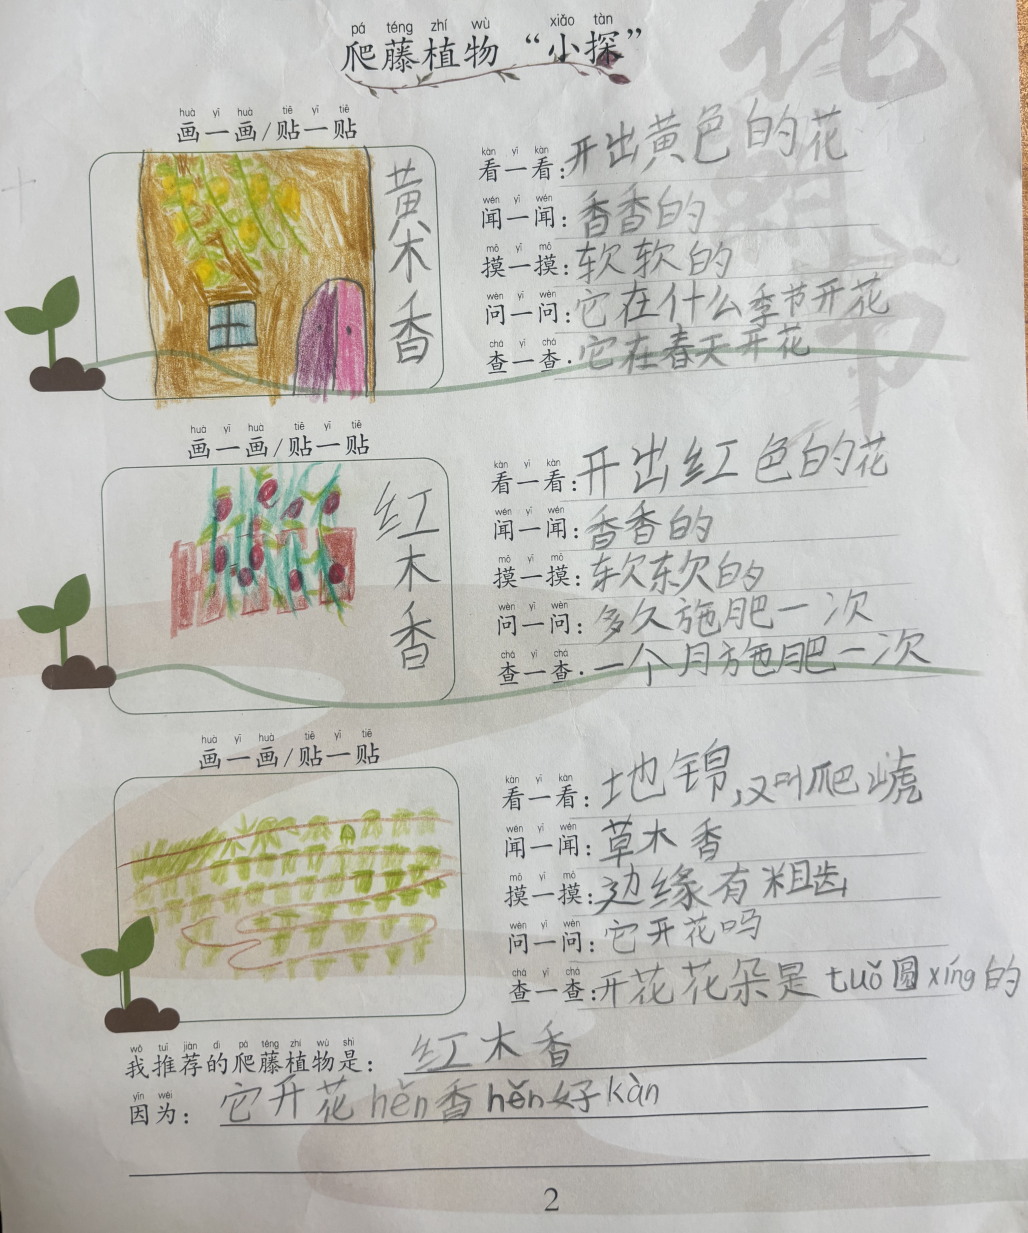 pá téng zhí wù xiǎo tàn
爬藤植物“小探”
huà yī huà tiē yī tiē
画一画/贴一贴
黄木香
kàn yi kàn
看一看：开出黄色的花
wén yī wén
闻一闻：香香的
mō yī mō
摸一摸：软软的
wèn yī wèn
问一问：它在什么季节开花
chá yī chá
查一查：它在春天开花
huà yī huà tiē yī tiē
画一画/贴一贴
红木香
kàn yi kàn
看一看：开出红色的花
wén yī wén
闻一闻：香香的
mō yī mō
摸一摸：软软的
wèn yī wèn
问一问：多久施肥一次
chá yī chá
查一查：一个月施肥一次
huà yī huà tiē yī tiē
画一画/贴一贴
kàn yī kàn
看一看：地锦，又叫爬山虎
wén yī wén
闻一闻：草木香
mō yī mō
摸一摸：边缘有粗齿
wèn yī wèn
问一问：它开花吗
chá yī chá
查一查：开花花朵是tuǒ圆xíng的
wǒ tuī jiàn di pá téng zhí wù shì
我推荐的爬藤植物是：红木香
yīn wéi
因为：它开花hěn香hěn好kàn
2